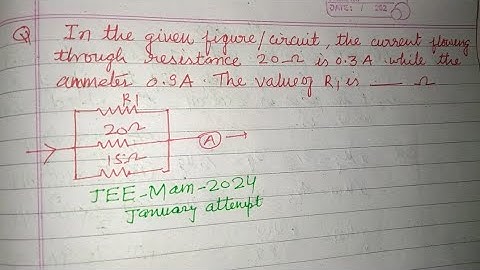 DATE: / 202
Q In the given figure/circuit, the current flowing
through resistance 20Ω is 0.3A while the
ammeter 0.9A. The value of R1 is ___ Ω
R1
20Ω
15Ω
A
JEE-Main-2024
January attempt